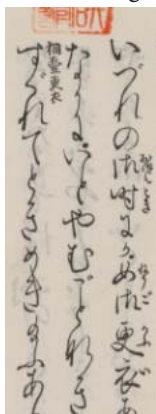 いづれの御時にか女御更衣あ
なかにいとやむごとなき
桐壺更衣
すぐれてときめき給ふあり